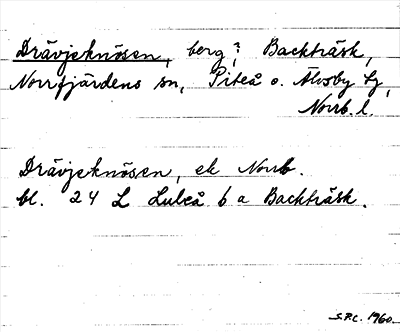 Drävjeknösen, berg; Backträsk,
Norrfjärdens sn, Piteå o. Älvsby tg,
Norrb. l.
Drävjeknösen, ek Norrb.
bl. 24 L Luleå 6 a Backträsk.
S.P.C. 1960.